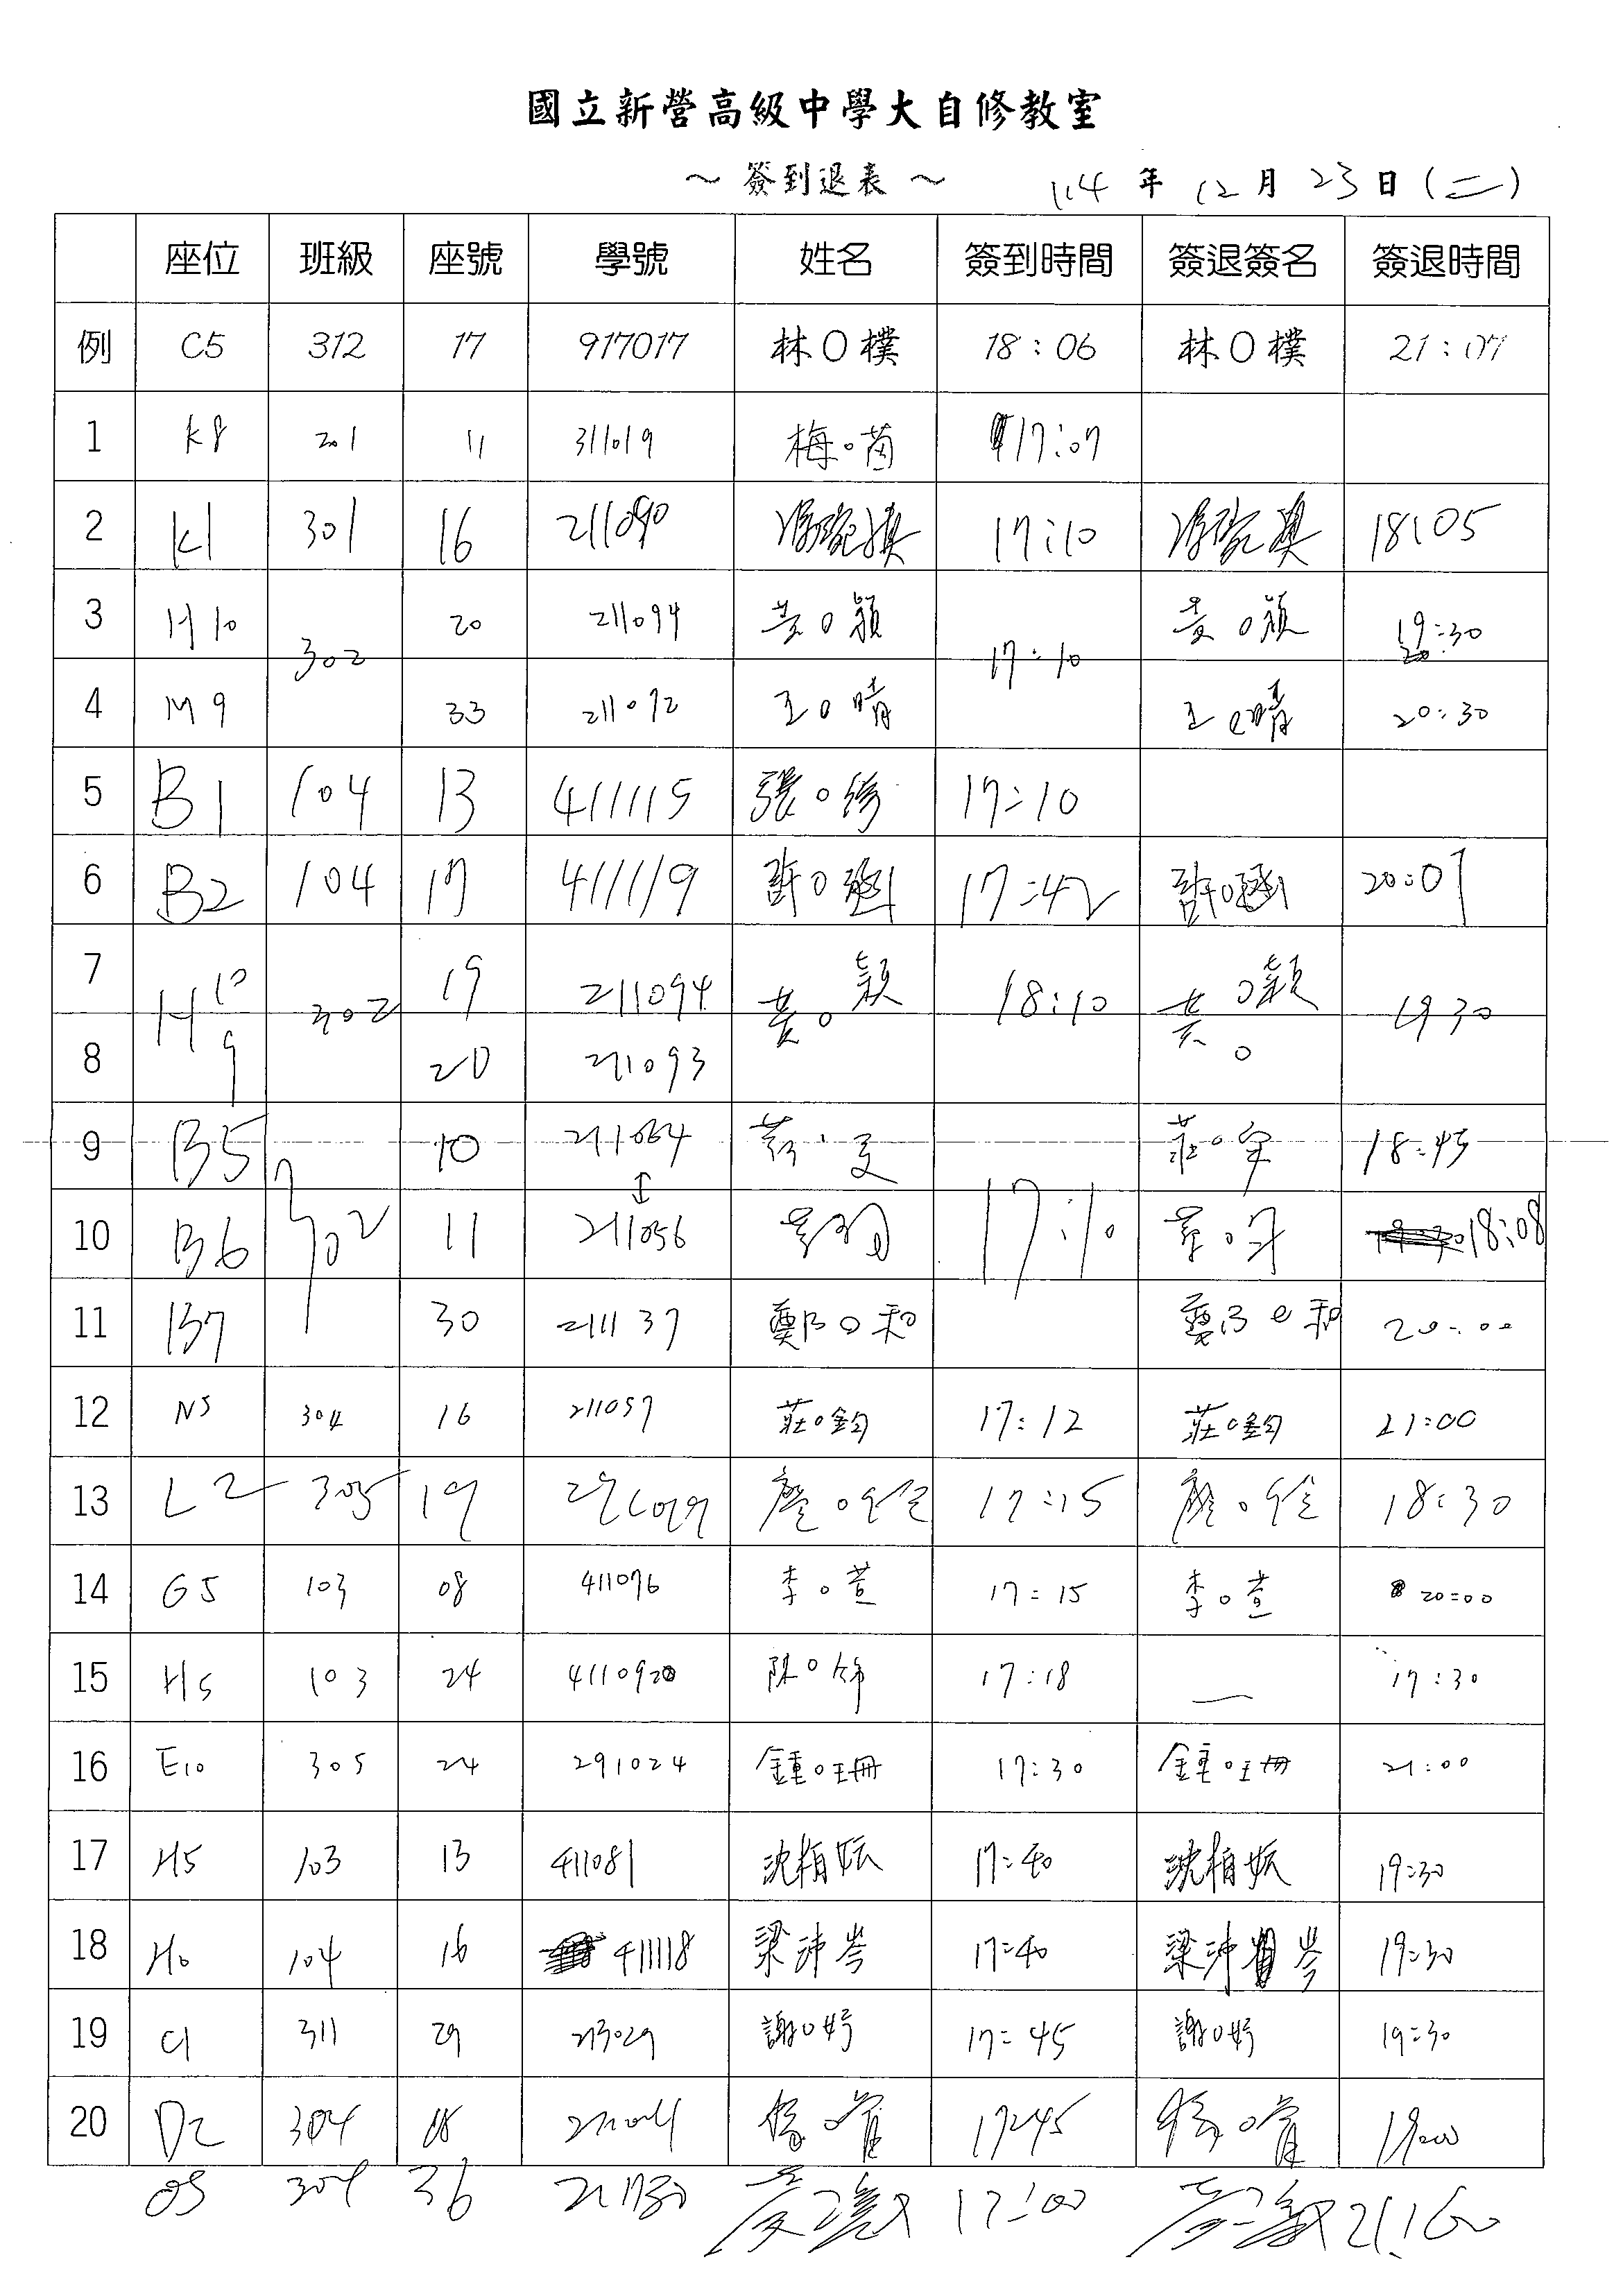 國立新營高級中學大自修教室
～ 簽到退表 ～ 114 年 12 月 23 日 (二)
座位 班級 座號 學號 姓名 簽到時間 簽退簽名 簽退時間
例 C5 312 17 917017 林O樸 18:06 林O樸 21:07
1 K8 201 11 311019 梅o茵 17:07
2 K1 301 16 17:10 18:05
3 H10 302 20 211094 黃O穎 17:10 黃O穎 19:30
4 M9 33 211072 王O晴 王O晴 20:30
5 B1 104 13 411115 張O修 17:10
6 B2 104 17 411119 許O 17:42 許O 20:07
7 H10 302 19 211094 黃O穎 18:10 O穎 19 30
8 9 20 211093
9 B5 10 211064 莊O 18:45
10 B6 302 11 211056 17:10 18:08
11 B7 30 211137 鄭O和 鄭O和 20:00
12 N5 304 16 211057 莊O鈞 17:12 莊O鈞 21:00
13 L2 305 19 17:15 18:30
14 G5 103 08 411076 李O萱 17:15 李O萱 20:00
15 H5 103 24 陳O 17:18 — 17:30
16 E10 305 24 291024 鍾O珊 17:30 鍾O珊 21:00
17 H5 103 13 411081 沈栯妘 17:40 沈栯妘 19:30
18 104 16 411118 梁沛岑 17:40 梁沛岑 19:30
19 C1 311 29 213029 謝O妤 17:45 謝O妤 19:30
20 D2 304 18 楊O 17:45 楊O 19:00
36 17:00